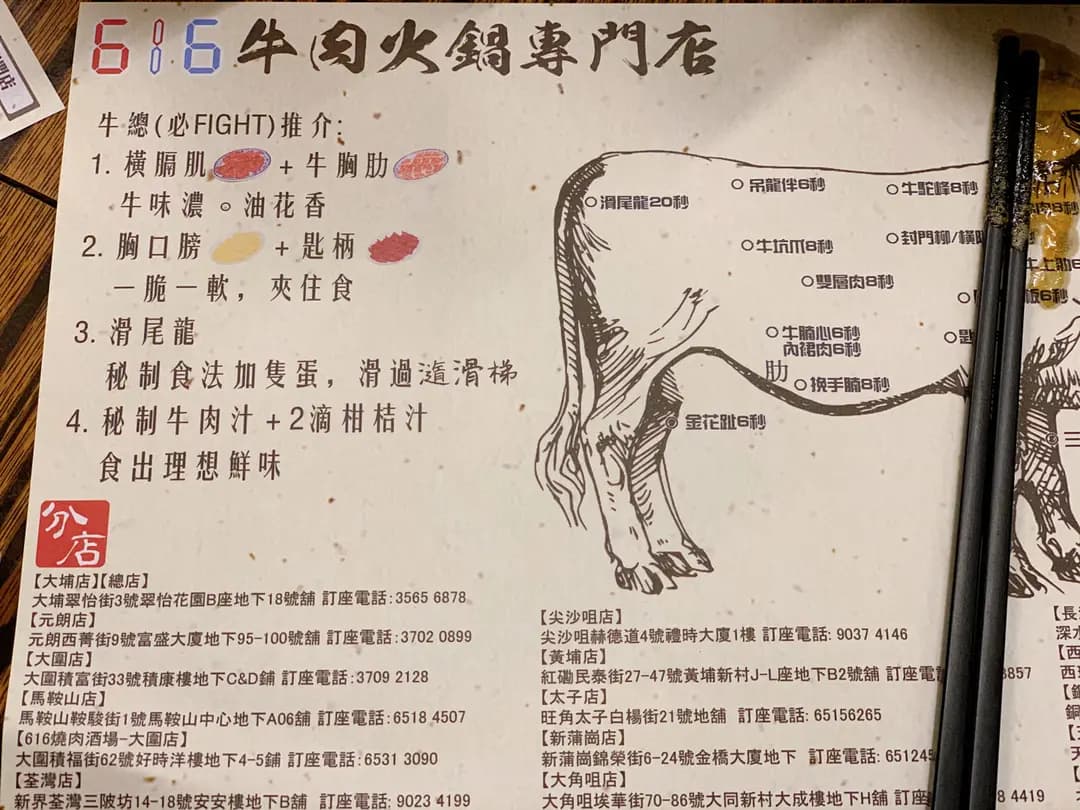 616牛肉火鍋專門店
牛總(必FIGHT)推介:
1. 橫膈肌 + 牛胸肋
牛味濃。油花香
2. 胸口膀 + 匙柄
一脆一軟，夾住食
3. 滑尾龍
秘制食法加隻蛋，滑過瀡滑梯
4. 秘制牛肉汁+2滴柑桔汁
食出理想鮮味
滑尾龍20秒
吊龍伴6秒
牛駝峰8秒
牛坑爪8秒
封門柳/橫
雙層肉8秒
牛腩心6秒
內裙肉6秒
肋
挽手腩8秒
金花趾6秒
匙
分店
【大埔店】【總店】
大埔翠怡街3號翠怡花園B座地下18號舖 訂座電話:3565 6878
【元朗店】
元朗西菁街9號富盛大廈地下95-100號舖 訂座電話:3702 0899
【大圍店】
大圍積富街33號積康樓地下C&D鋪 訂座電話:3709 2128
【馬鞍山店】
馬鞍山鞍駿街1號馬鞍山中心地下A06舖 訂座電話:6518 4507
【616燒肉酒場-大圍店】
大圍積福街62號好時洋樓地下4-5鋪 訂座電話:6531 3090
【荃灣店】
新界荃灣三陂坊14-18號安安樓地下B舖 訂座電話: 9023 4199
【尖沙咀店】
尖沙咀赫德道4號禮時大廈1樓 訂座電話: 9037 4146
【黃埔店】
紅磡民泰街27-47號黃埔新村J-L座地下B2號舖 訂座電 3857
【太子店】
旺角太子白楊街21號地舖 訂座電話: 65156265
【新蒲崗店】
新蒲崗錦榮街6-24號金橋大廈地下 訂座電話: 651245
【大角咀店】
大角咀埃華街70-86號大同新村大成樓地下H舖 訂座 8 4419
【長
深水
【西
西